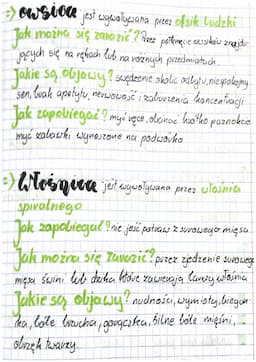 :) owsica jest wywoływana przez owsik ludzki
Jak można się zarazić? Przez połknięcie owsików znajdu-
jących się na rękach lub na różnych przedmiotach.
Jakie są objawy? swędzenie okolic odbytu, niespokojny
sen, brak apetytu, nerwowość i zaburzenia koncentracji
Jak zapobiegać? myć ręce, obcinać krótko paznokcie
myć zabawki wynoszone na podwórko
:) Włośnica jest wywoływana przez włośnia
spiralnego
Jak zapobiegać? nie jeść potraw z surowego mięsa
Jak można się zarazić? przez zjedzenie surowego
mięsa świni lub dzika które zawierają larwy włośnia
Jakie są objawy? nudności, wymioty, biegun-
ka, bóle brzucha, gorączka, silne bóle mięśni,
obrzęk twarzy